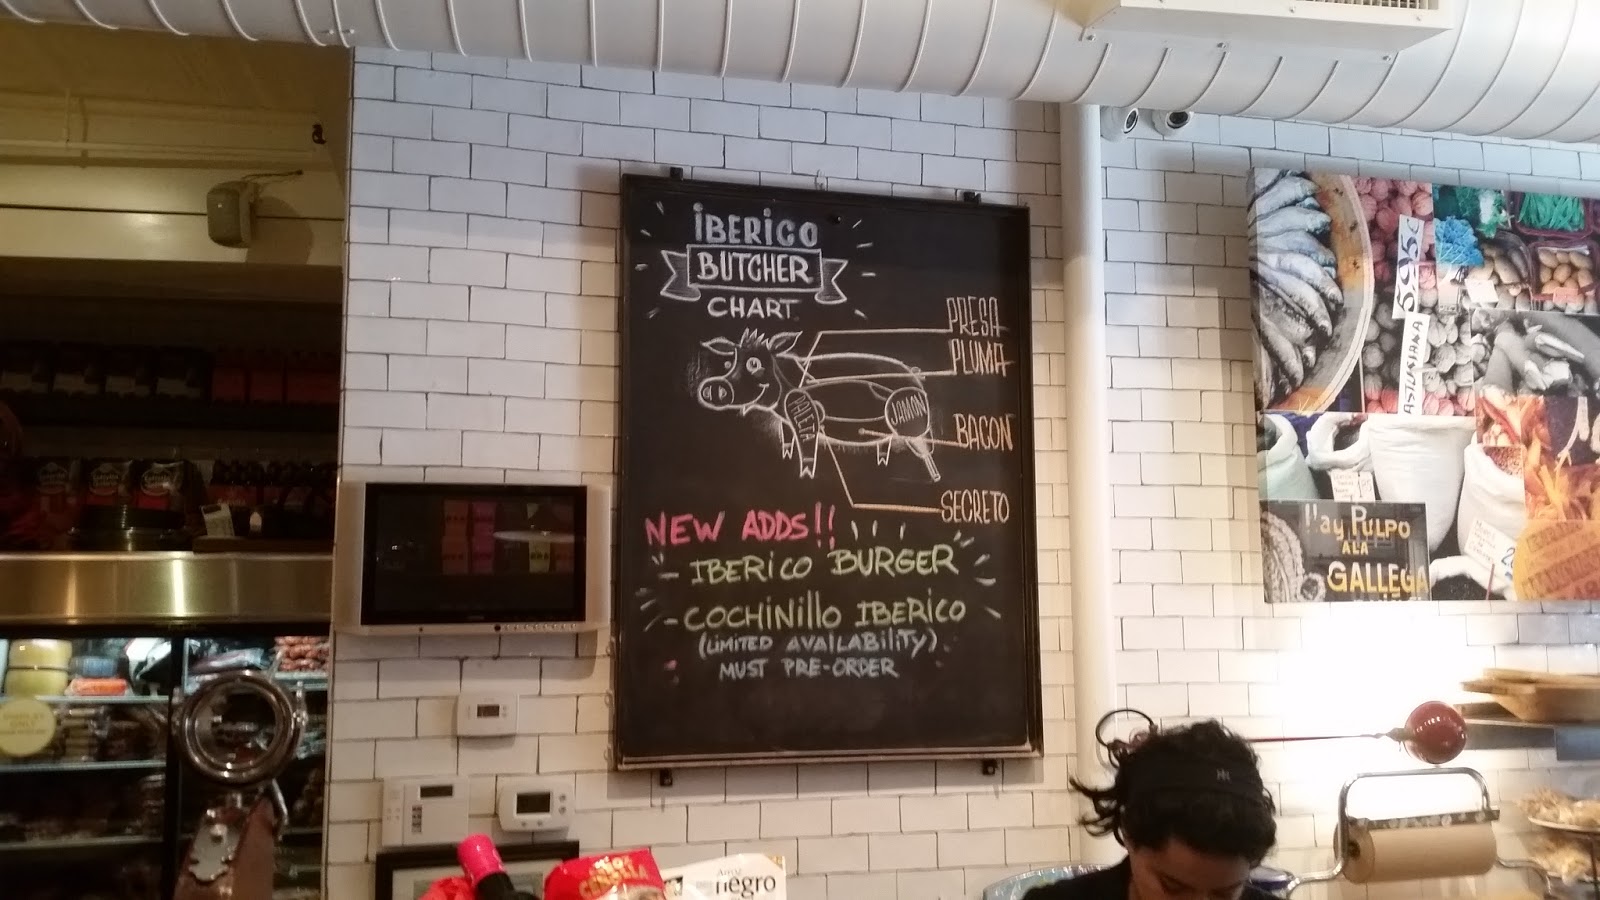 IBERICO
BUTCHER
CHART
PRESA
PLUMA
PALETA
JAMON
BACON
SECRETO
NEW ADDS!!
- IBERICO BURGER
- COCHINILLO IBERICO
(LIMITED AVAILABILITY)
MUST PRE-ORDER
595€
ASTURIANA
!!ay PULPO
A LA
GALLEGA
negro